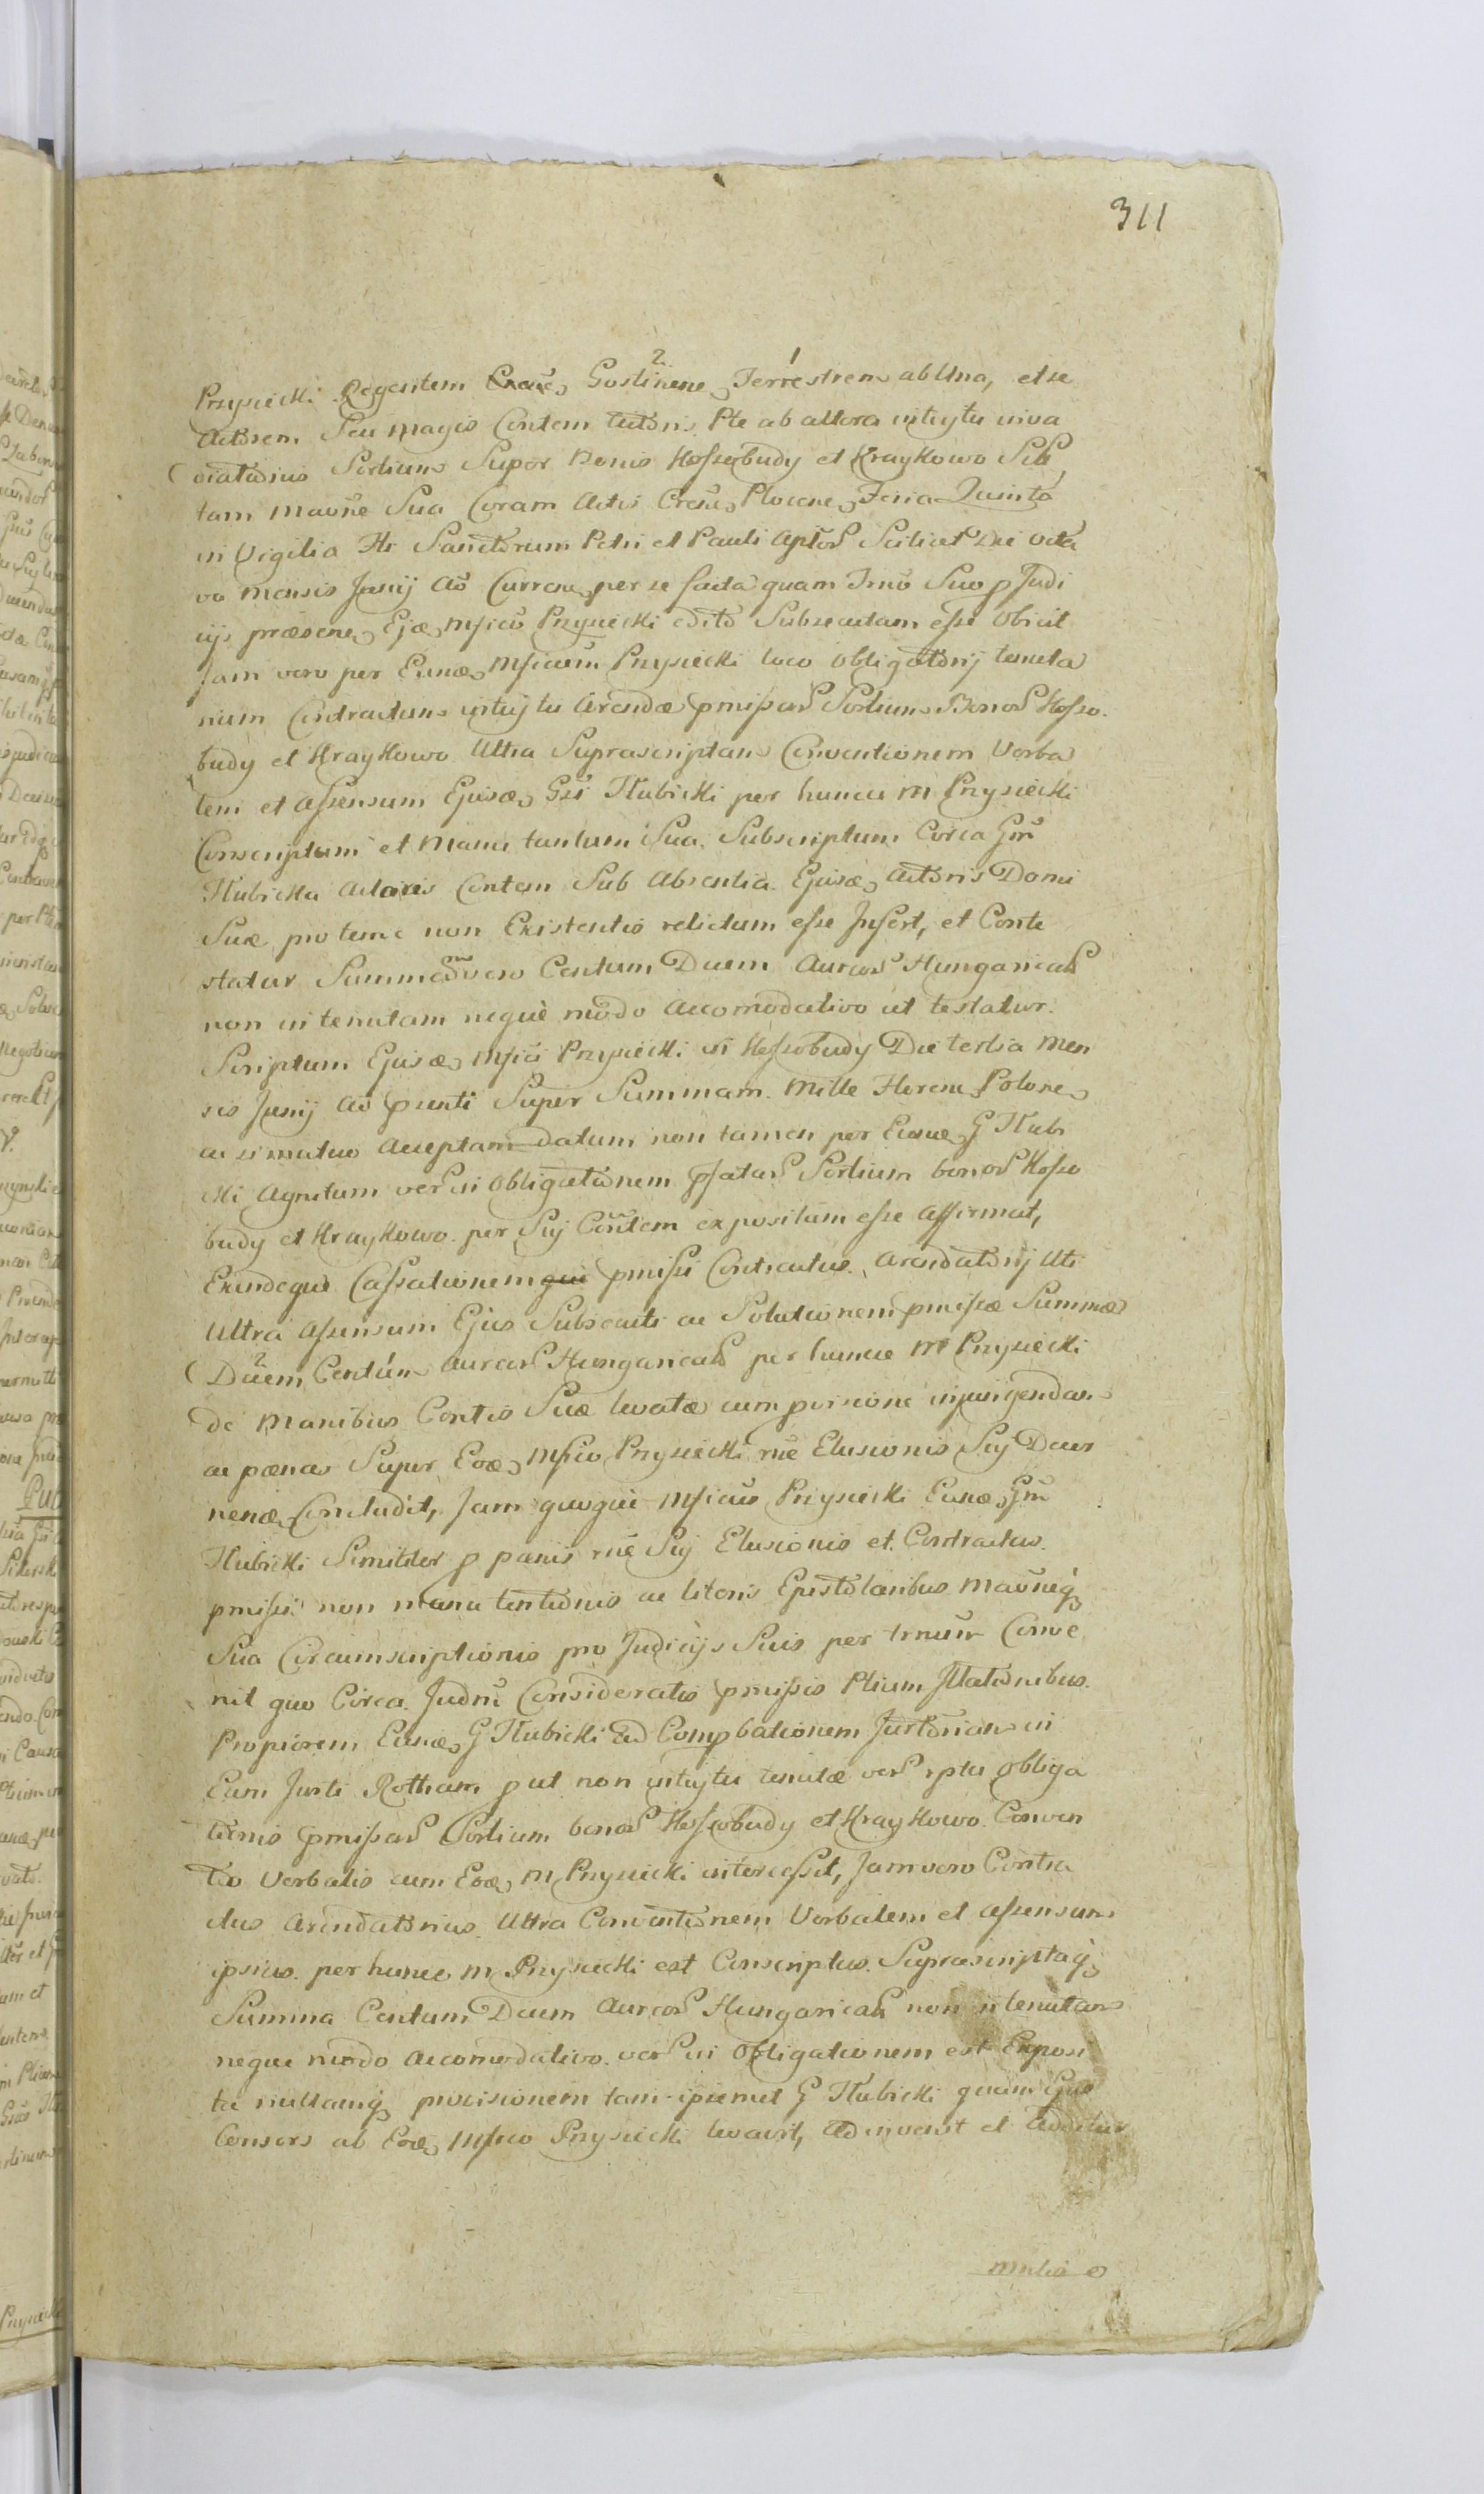 311
Przysiecki Regentem Gostinen Terrestrem ab Una, et se
Actorem Seu magis Contem Actoris Pte ab altera intuytu inva
diatorius Sortium Super Bonis Kossobudy et Kraykowo
tam Manũe Sua Coram Actis Cresu Plocen Feria Quinta
in Vigilia Sanctorum Petri et Pauli Aptor Scilicet Die Octa
vo Mensis Junij Ao Curren per se facta quam Suo p Judi
cijs præsen Ejæ Mfico Przysiecki Subsecutam esse Obicit
Jam vero per Eunæ Mficum Przysiecki loco Obligatorij tenuta
rium Contractum intuytu Arendæ pmissar Sortium Bonor Kosso
budy et Kraykowo Ultra Suprascriptam Conventionem Verba
lem et Assensum Ejusæ Gsi Hubicki per hunce M Przysiecki
Conscriptum et Manu tantum Sua Subscriptum Circa Gm
Hubicka Actoris Contem Sub Absentia Ejusæ Actoris Domi
Suæ pro temc non Existentis relictum esse Infert, et Conte
statur Summam vero Centum Duem Aureor Hungarical
non in tenutam neque modo Accomodativo ut testatur
Scriptum Ejusæ Mfici Przysiecki in Kossobudy Die tertia Men
sis Junij Ao psenti Super Summam Mille Floren Polone
ac si mutuo Acceptam datum non tamen per Eunæ G Hubi
cki Agnitum ver in Obligationem pfatar Sortium bonor Kosso
budy et Kraykowo per Sui Contem expositam esse Affirmat,
Exindeque Cassationem pmissi Contractus Arendatorij Uti
Ultra Assensum Ejus Subsecuti ac Solutionem pmissæ Summæ
Duem Centum Aureor Hungarical per hunce M Przysiecki
de Manibus Contis Suæ levatæ cum provisione injungendam
ac pænas Super Eoæ Mfico Przysiecki rne Elusionis Sui Decer
nenæ Concludit, Jam quoque Mficus Przysiecki Eunæ Gm
Hubicki Similiter p pænis rne Sui Elusionis et Contractus
pmissi non manu tentionis ac literis Epistolaribus Maũneq
Sua Circumscriptionis pro Judicijs Suis per trnum Conve
nit quo Circa Judm Consideratis pmissis Ptium Illationibus
Propiorem Eunæ G Hubicki ad Compbationem Jurtoriam in
Eum Jurti Rotham put non intuytu tenutæ ver rptu Obliga
tionis pmissar Sortium bonor Kossobudy et Kraykowo Conven
tio Verbalis cum Eoæ M Przysiecki intercessit, Jam vero Contra
ctus Arendatorius Ultra Conventionem Verbalem et assensum
ipsius per hunce M Przysiecki est Conscriptus Suprascriptaq
Summa Centum Duem Aureor Hungarical non in tenutam
neque modo Accomodativo ver in Obligationem est Exposi
ta nullamq provisionem tam ipsemet G Hubicki quam Ejus
Consors ab Eoæ Mfico Przysiecki levavit, Adinvenit et